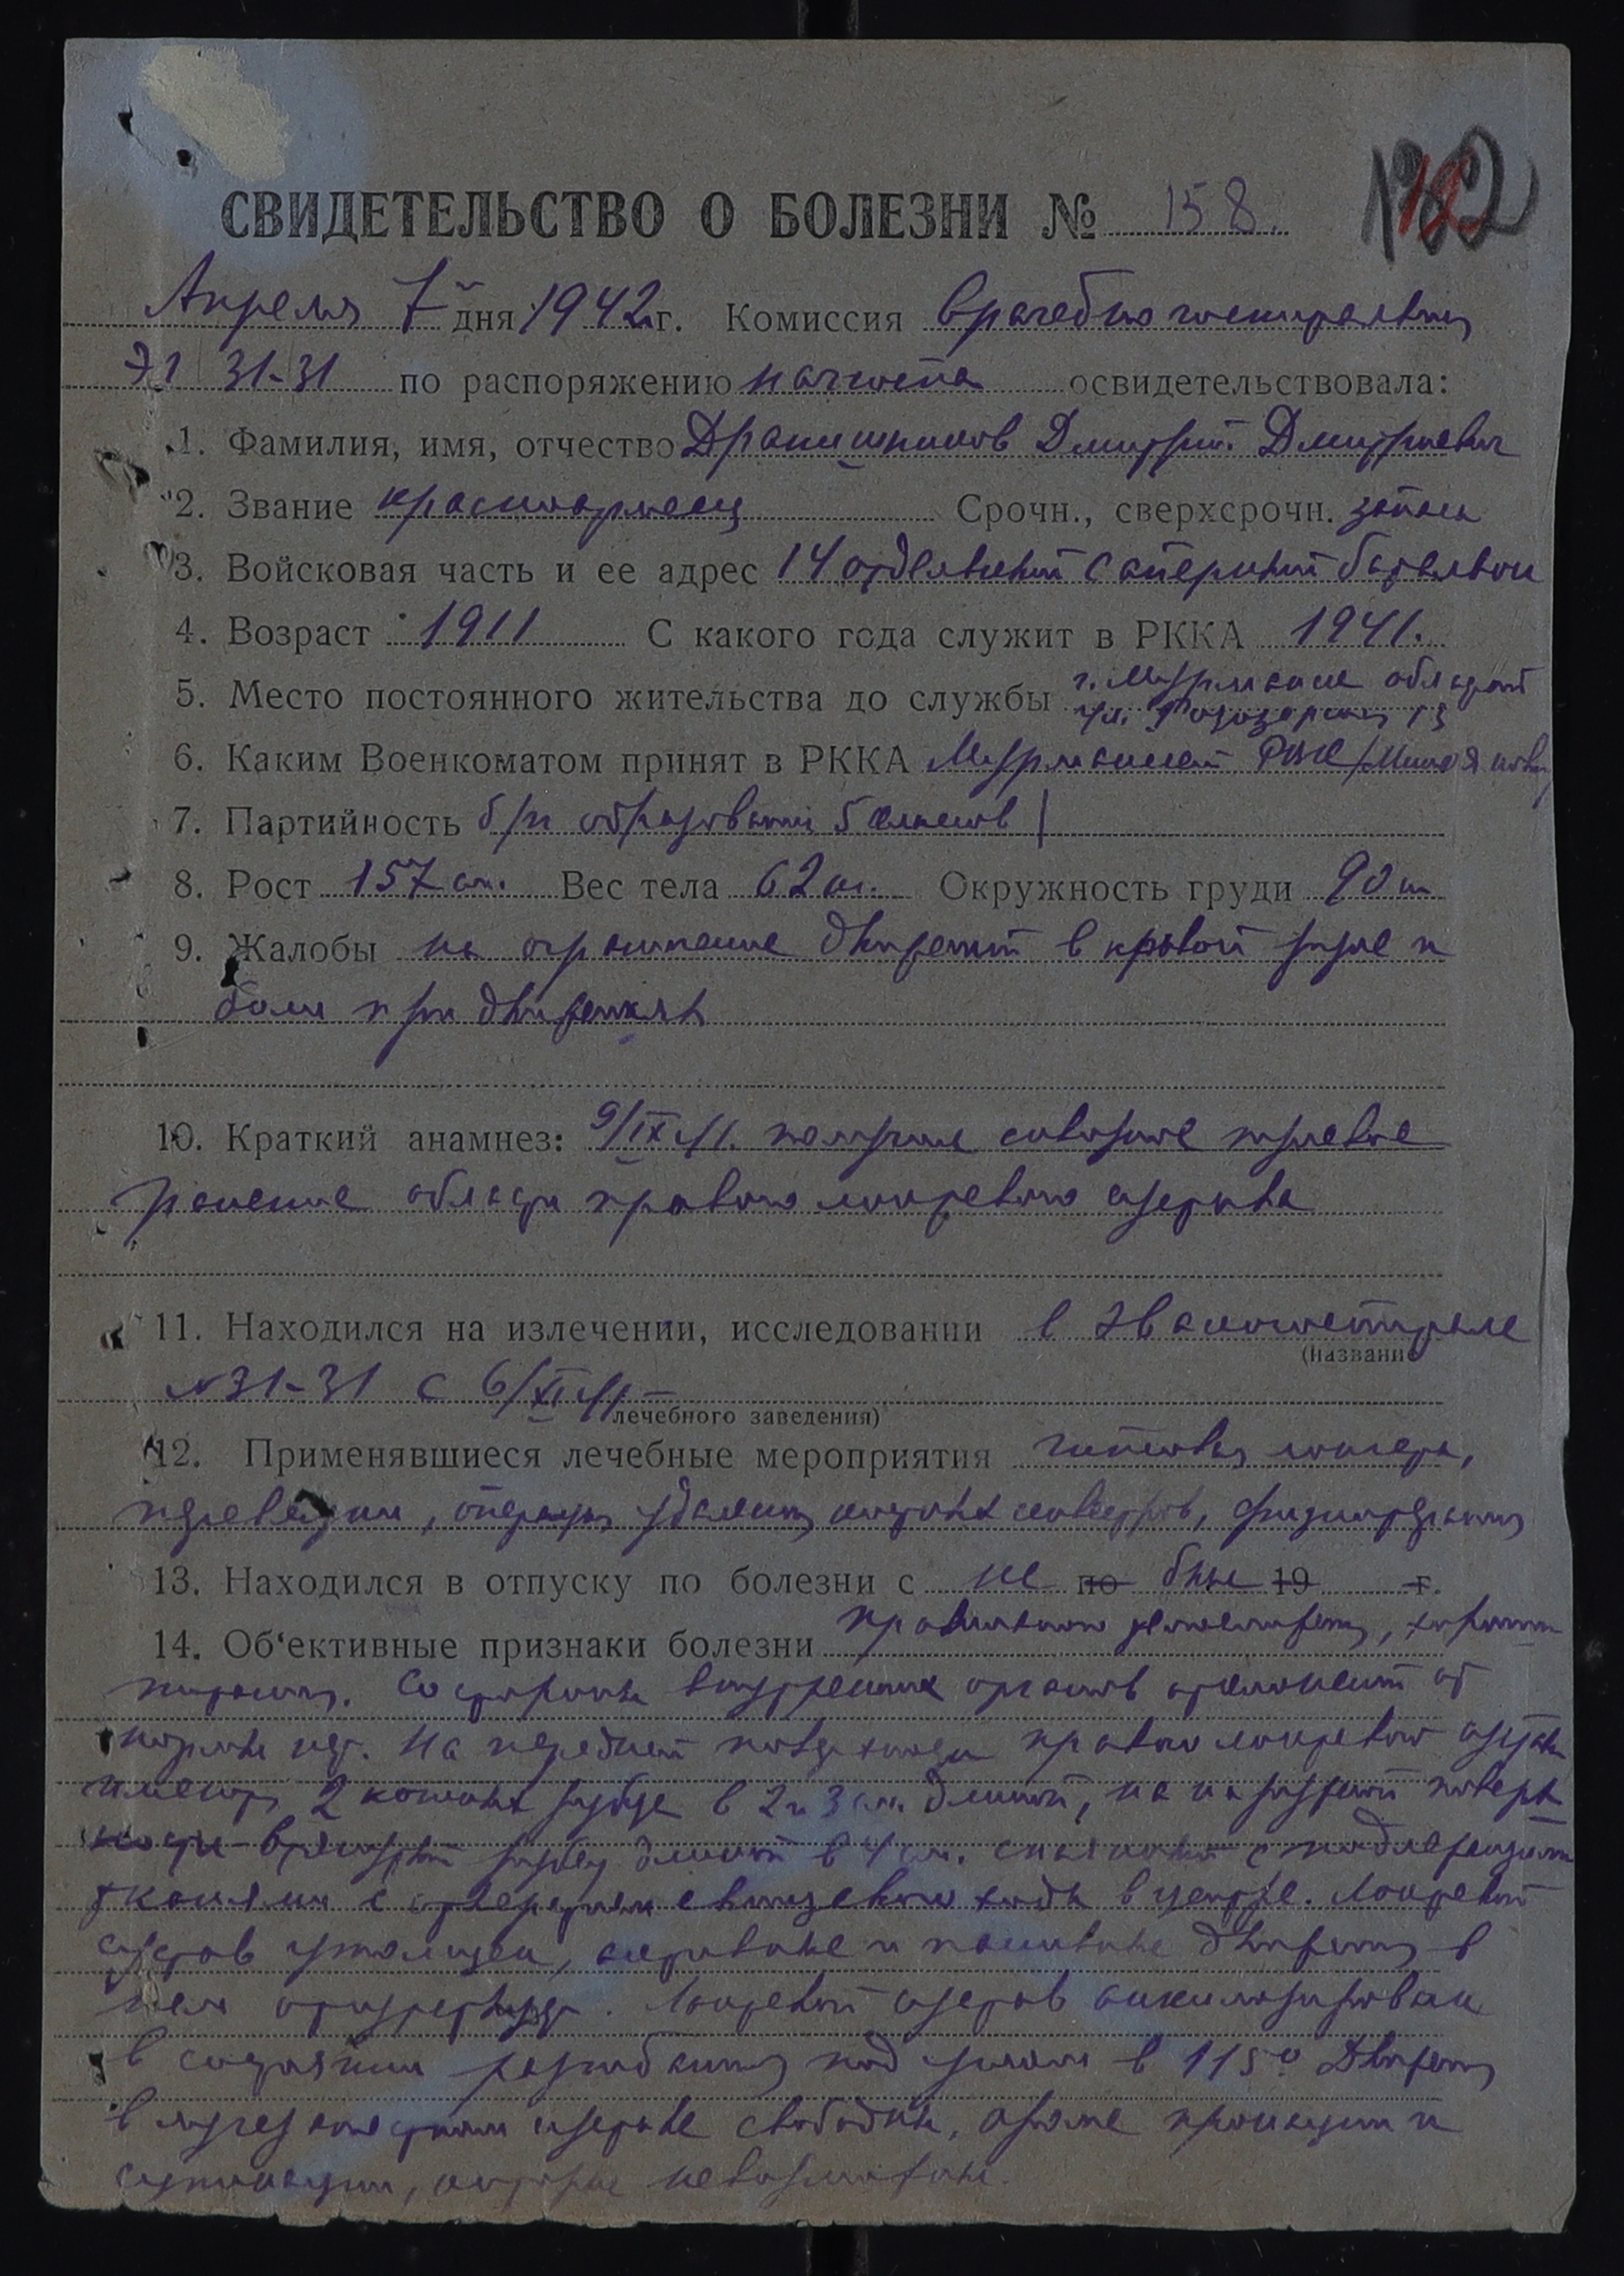 182
СВИДЕТЕЛЬСТВО О БОЛЕЗНИ № 158.
Апреля 7 дня 1942 г. Комиссия врачебно госпиральная
ЭГ 31-31 по распоряжению освидетельствовала:
1. Фамилия, имя, отчество Дранишников Дмитрий Дмитриевич
2. Звание красноармеец Срочн., сверхсрочн. запаса
3. Войсковая часть и ее адрес 14 отдельный саперный батальон
4. Возраст 1911 С какого года служит в РККА 1941.
5. Место постоянного жительства до службы г. Мурманске области
ул.
6. Каким Военкоматом принят в РККА Мурманский РВК
7. Партийность б/п образование 5 классов
8. Рост 157 см. Вес тела 62 кг. Окружность груди 90 см
9. Жалобы на ограничение движений в правой руке и
боли при движениях
10. Краткий анамнез: 9/IX 41. получил сквозное пулевое
ранение области правого локтевого сустава
11. Находился на излечении, исследовании в эвакогоспитале
(название
№ 31-31 с 6/XI 41
лечебного заведения)
12. Применявшиеся лечебные мероприятия гипсовая лонгета,
перевязки, операция удаления костных секвестров, физиотерапия
13. Находился в отпуску по болезни с не по был 19 г.
14. Об‘ективные признаки болезни правильного телосложения, хорошего
питания. Со стороны внутренних органов отклонений от
нормы нет. На передней поверхности правого локтевого сустава
имеются 2 кожных рубца в 2 и 3 см. длиной, на наружной поверх
ности втянутый рубец длиной в 4 см. спаянный с подлежащими
тканями с отверстием свищевого хода в центре. Локтевой
сустав утолщен, активные и пассивные движения в
нем отсутствуют. Локтевой сустав анкилозирован
в состоянии разгибания под углом в 115° Движения
в лучезапястном суставе свободны, кроме пронации и
супинации, которые невозможны.